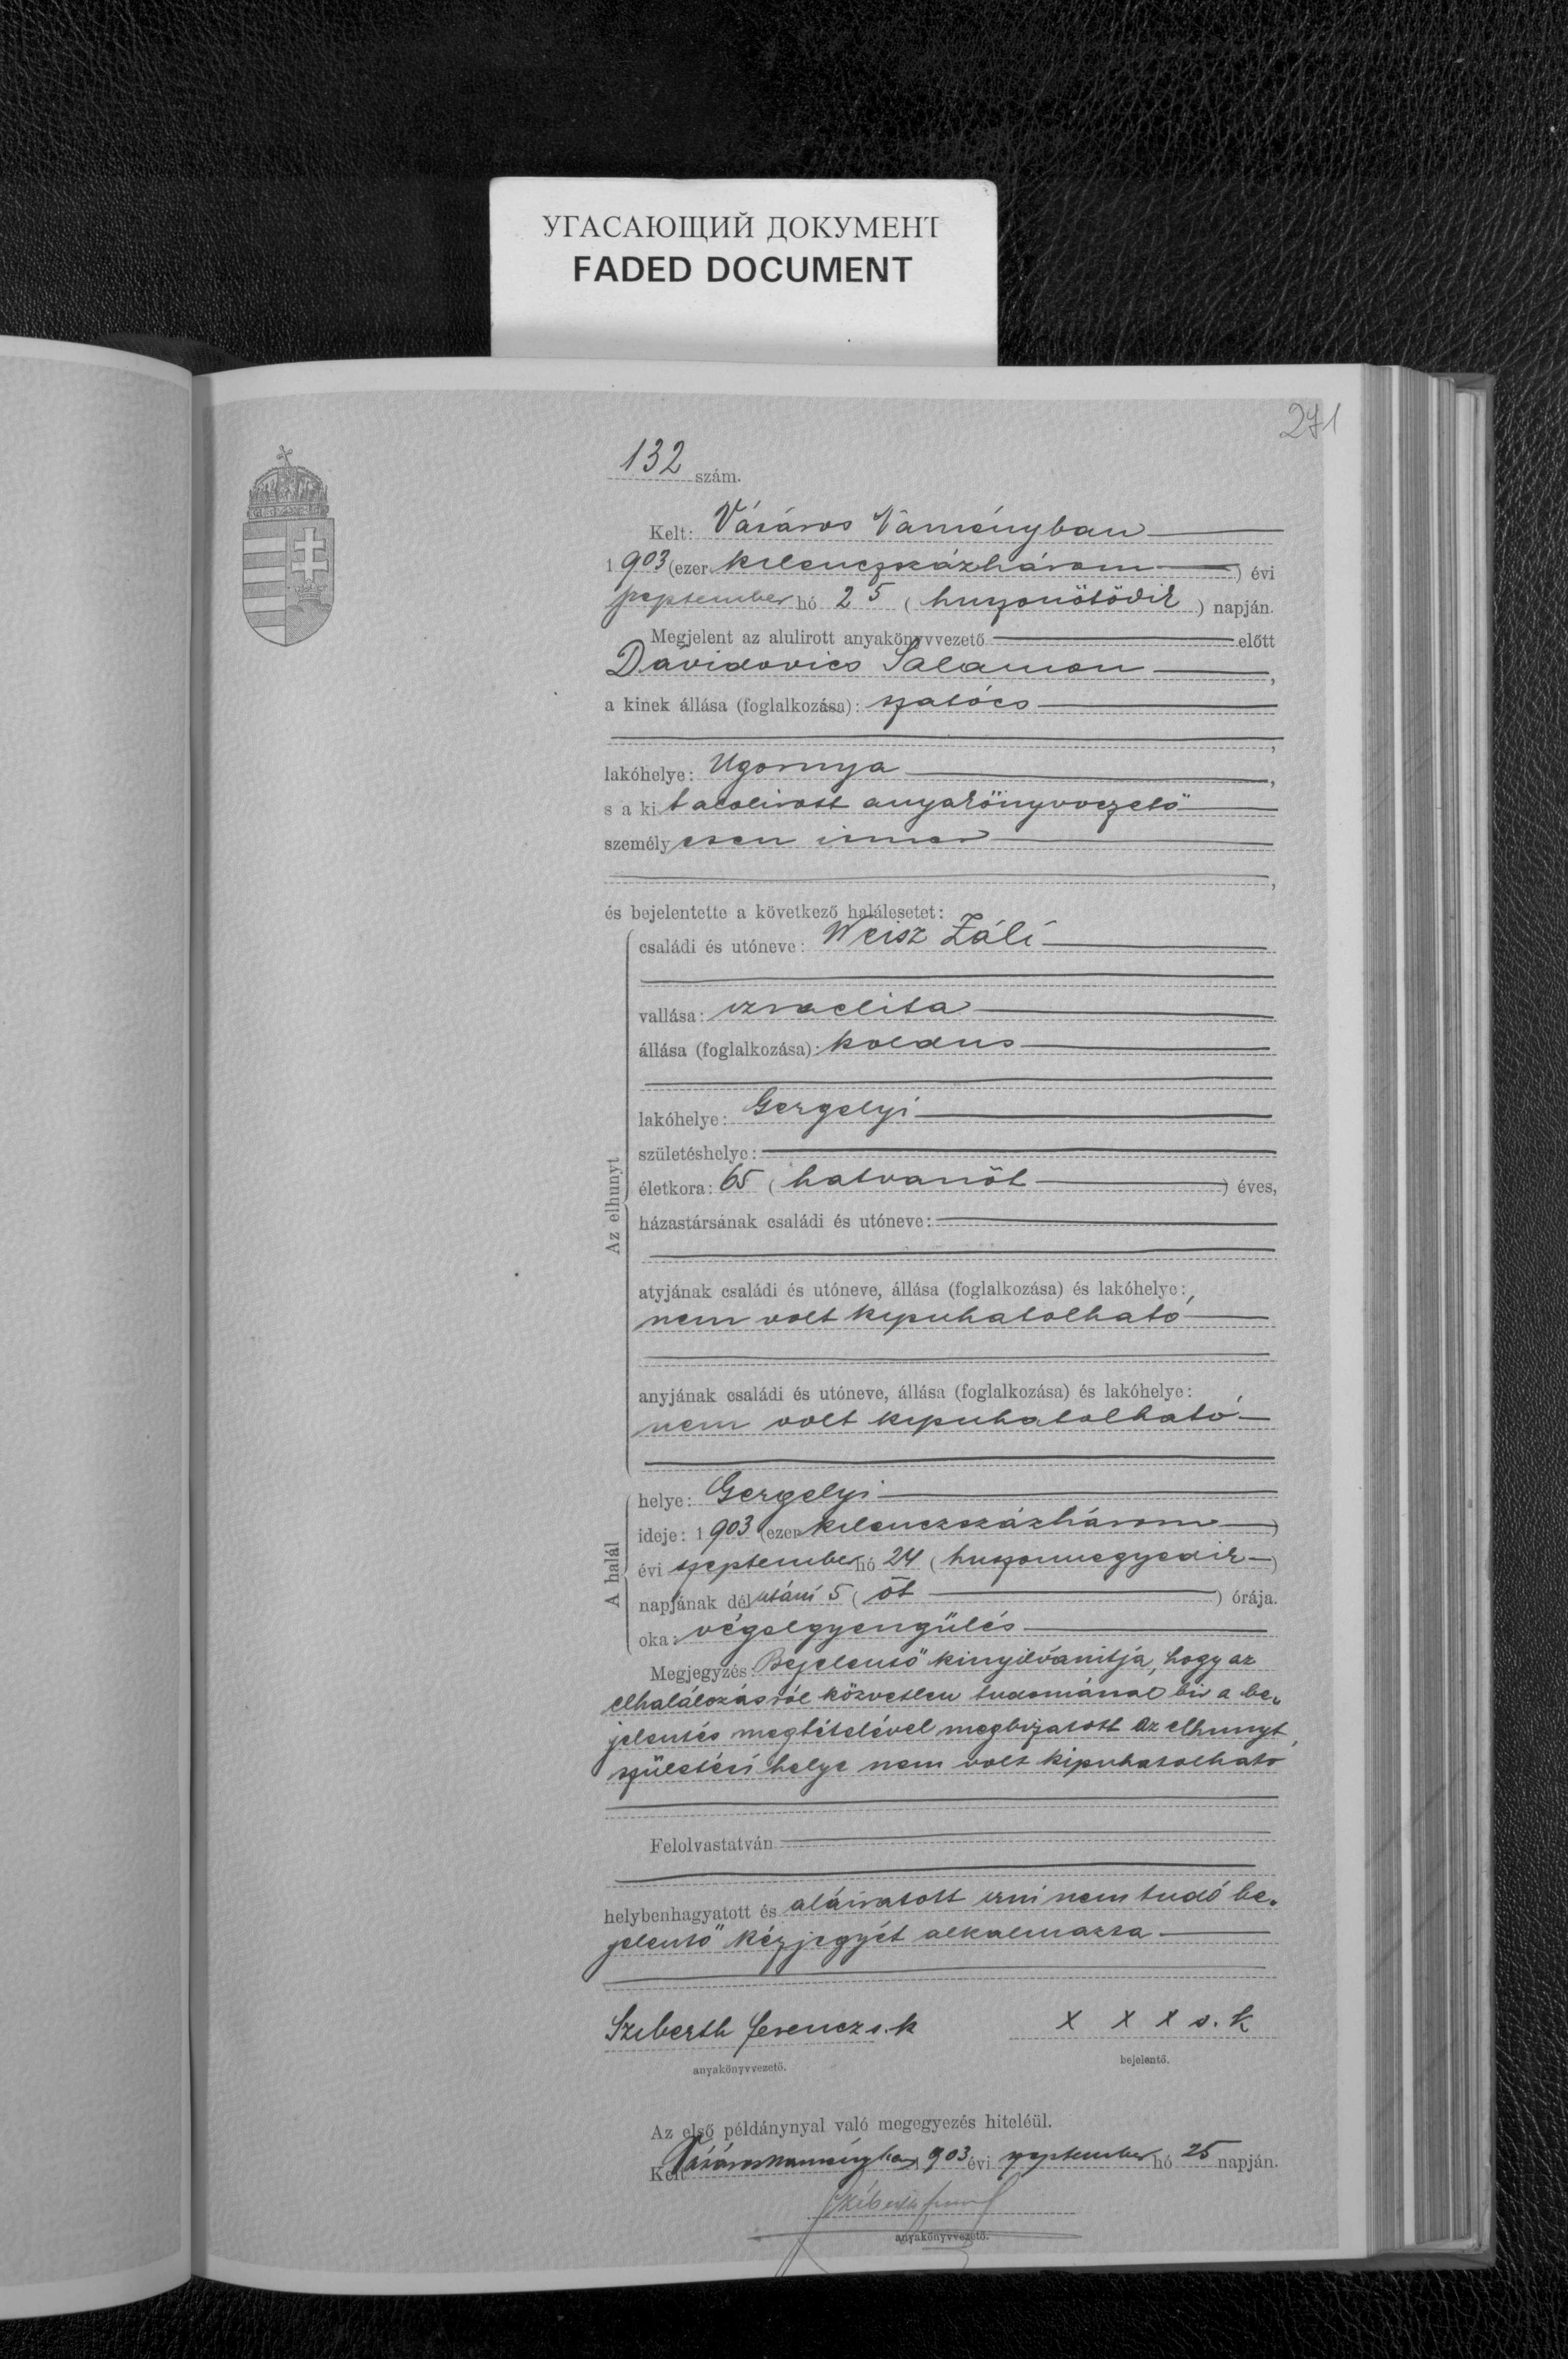 УГАСАЮЩИЙ ДОКУМЕНТ
FADED DOCUMENT
271
132 szám.
Kelt: Vásáros Naményban
1903 (ezer kilenczszázhárom) évi
szeptember hó 25 (huszonötödik) napján.
Megjelent az alulirott anyakönyvvezető előtt
Dávidovics Salamon,
a kinek állása (foglalkozása): szatócs
,
lakóhelye: Ugornya,
s a kit alolirott anyakönyvvezető
személyesen ismer
,
és bejelentette a következő halálesetet:
Az elhunyt
családi és utóneve: Weisz Záli
vallása: izraelita
állása (foglalkozása): koldus
lakóhelye: Gergelyi
születéshelye:
életkora: 65 (hatvanöt) éves,
házastársának családi és utóneve:
atyjának családi és utóneve, állása (foglalkozása) és lakóhelye:
nem volt kipuhatolható
anyjának családi és utóneve, állása (foglalkozása) és lakóhelye:
nem volt kipuhatolható
A halál
helye: Gergelyi
ideje: 1903 (ezer kilenczszázhárom)
évi szeptember hó 24 (huszonnegyedik)
napjának délutáni 5 (öt) órája.
oka: végelgyengülés
Megjegyzés: Bejelentő kinyilvánitja, hogy az
elhalálozásról közvetlen tudomással bir a be„
jelentés megtételével megbizatott Az elhunyt
születési helye nem volt kipuhatolható
Felolvastatván
helybenhagyatott és aláiratott irni nem tudó be„
jelentő kézjegyét alkalmazta
Sziberth Ferencz s. k x x x s. k
anyakönyvvezető. bejelentő.
Az első példánynyal való megegyezés hiteléül.
Kelt Vásárosnaményban, 903 évi szeptember hó 25 napján.
Sziberth Ferencz
anyakönyvvezető.